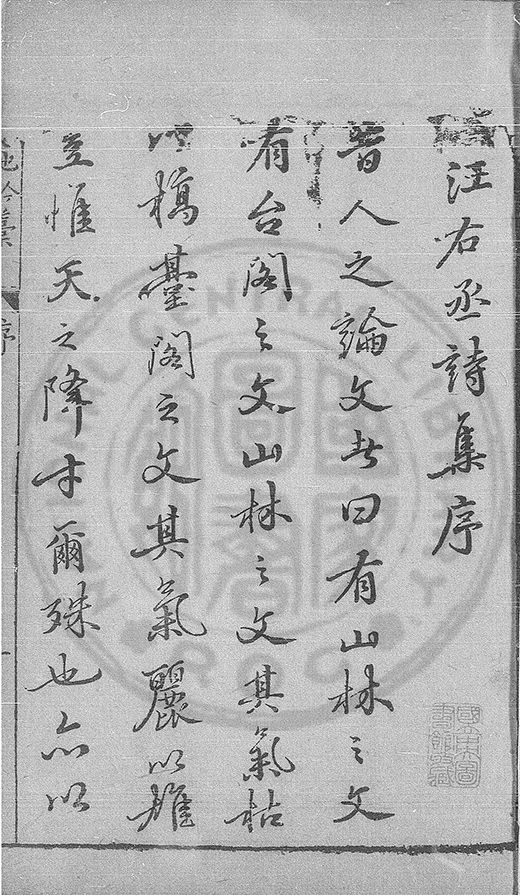 汪右丞詩集序
昔人之論文者曰有山林之文
有台閣之文山林之文其氣枯
以槁臺閣之文其氣麗以雄
豈惟天之降才爾殊也亦以
序
CENTRAL LIBRARY